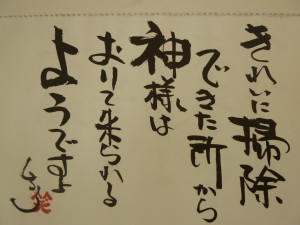 きれいに掃除
できた所から
神様は
おりて来られる
ようですよ
笑